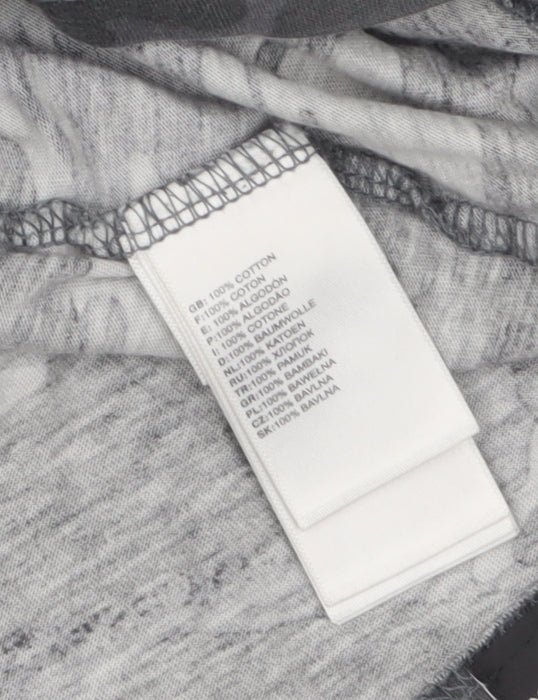 GB: 100% COTTON
F: 100% COTON
E: 100% ALGODÓN
P: 100% ALGODÃO
I: 100% COTONE
D:100% BAUMWOLLE
NL:100% KATOEN
RU:100% ХЛОПОК
TR:100% PAMUK
GR:100% BAMBAKI
PL:100% BAWEŁNA
CZ:100% BAVLNA
SK:100% BAVLNA